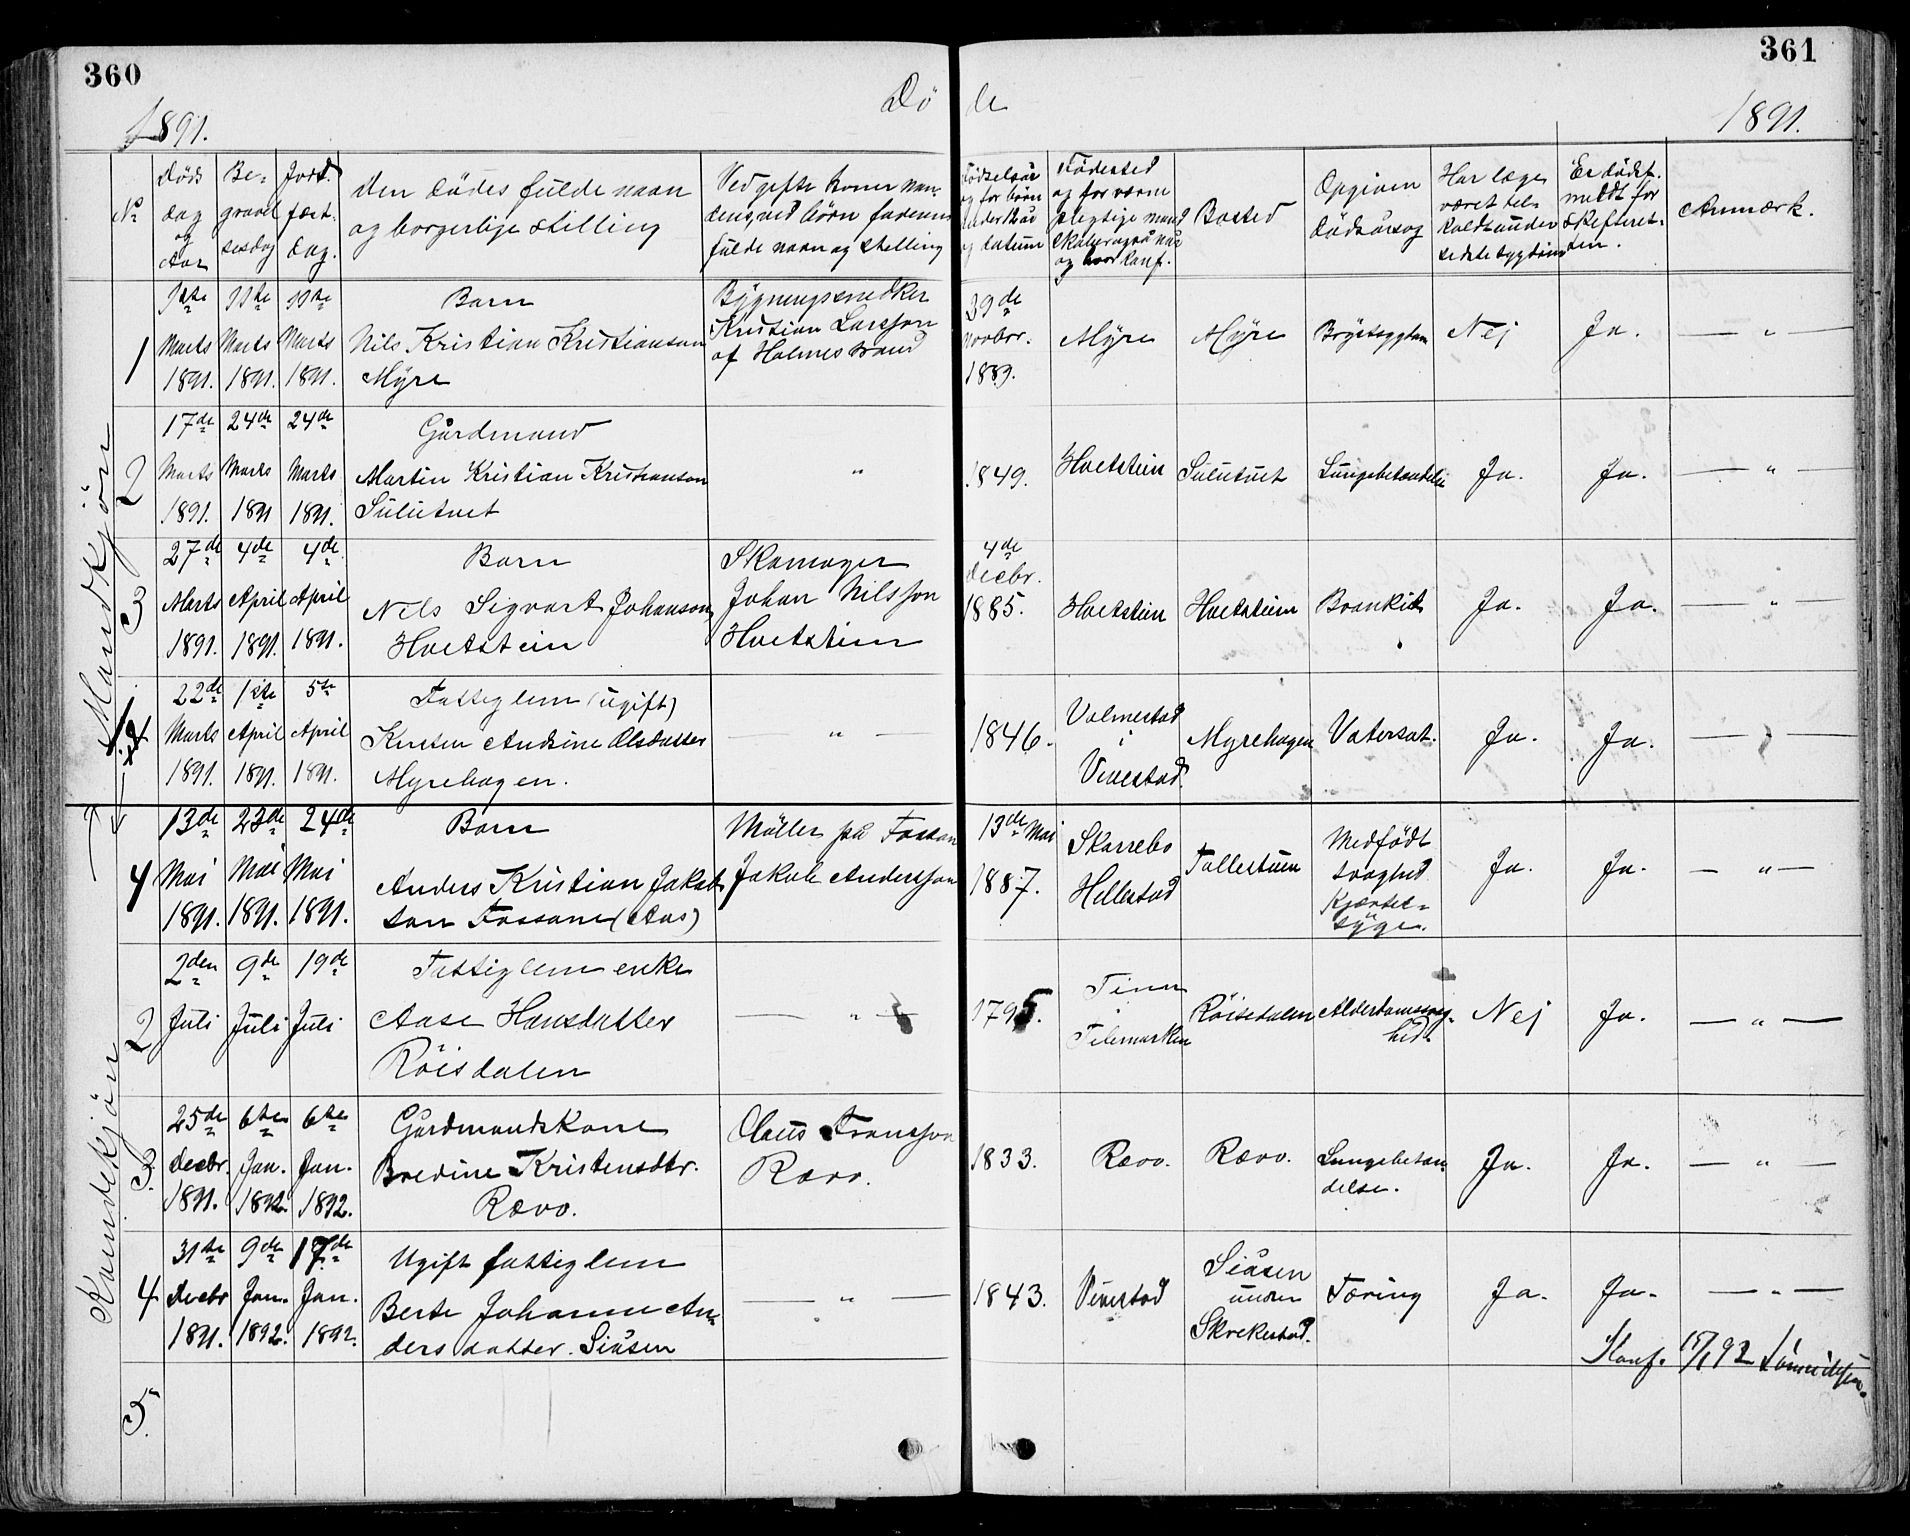 360
361
Dö
de
1891.
1891.
No
Döds dag og Aar
Be- gravel sesdag
Jord. fæst. dag.
Den dödes fulde navn og borgerlige stilling
Ved gifte koner man- dens, ved börn faderens fulde navn og stilling
Födselsår og for börn under 2 år og datum
Födested og for værne pligtige mænd også når og hvor konf.
Bosted
Opgiven dödsårsag
Har læge været til- kaldt under sidste sygdom
Er dödsf. meldt for Skifteret- ten.
Anmærk.
Mandkjön
1
Marts 1891.
11te Marts 1891.
11te Marts 1891.
Barn
Nils Kristian Kristianson
Myre
Bygningssnedker
Kristian Larsson
af Holmestrand
novbr. 1889.
Myre
Myre
Brystsygdom
Nej
Ja.
— " —
2
17de Marts 1891.
24de Marts 1891
24de Marts 1891.
Gårdmand
Martin Kristian Kristianson
Sulutvet
"
1849.
Hvetstein
Sulutvet
Lungebetændelse
Ja.
Ja.
— " —
3
27de Marts 1891.
4de April 1891.
4de April 1891.
Barn
Nels Sigvart Johanson
Hvetstein
Skomager
Johan Nilsson
Hvetstein
4de Decbr. 1885.
Hvetstein
Hvetstein
Bronkit
Ja.
Ja.
— " —
22de Marts 1891.
1ste April 1891.
5te April 1891.
Fattiglem (ugift)
Kirsten Andrine Olsdatter
Myrehagen.
— " —
1846.
Valmestad
i
Vivestad.
Myrehagen
Vatersot.
Ja.
Ja.
— " —
4
13de Mai 1891.
23de Mai 1891.
24de Mai 1891.
Barn
Anders Kristian Jakob-
son Fossane (Aas)
Möller på Fossan
Jakob Andersson
13de Mai 1887.
Skorrebo
Hillestad
Tollerstuen
Medfödt
svaghed
Kjærtel-
syge.
Ja.
Ja.
— " —
Kvindekjön
2
2den Juli
9de Juli
19de Juli
Fattiglem enke
Aase Hansdatter
Röisdalen
— " —
1795.
Tinn
i
Telemarken
Röisedalen
Alderdomssvag-
hed.
Nej
Ja.
— " —
3
25de Decbr. 1891.
6te Jan. 1892.
6te Jan. 1892.
Gårdmandskone
Bredine Kristensdtr.
Rævo.
Olaus Fransson
Rævo.
1833.
Rævo.
Rævo.
Lungebetæn-
delse.
Ja.
Ja.
— " —
4
31te Decbr 1891.
9de Jan. 1892.
17de Jan. 1892.
Ugift fattiglem
Berte Johanne An-
ders datter. Siåsen
— " —
1843.
Vivestad
Siåsen
under
Skrekestad.
Tæring
Ja.
Ja.
— " —
Konf. 15/1 92
5